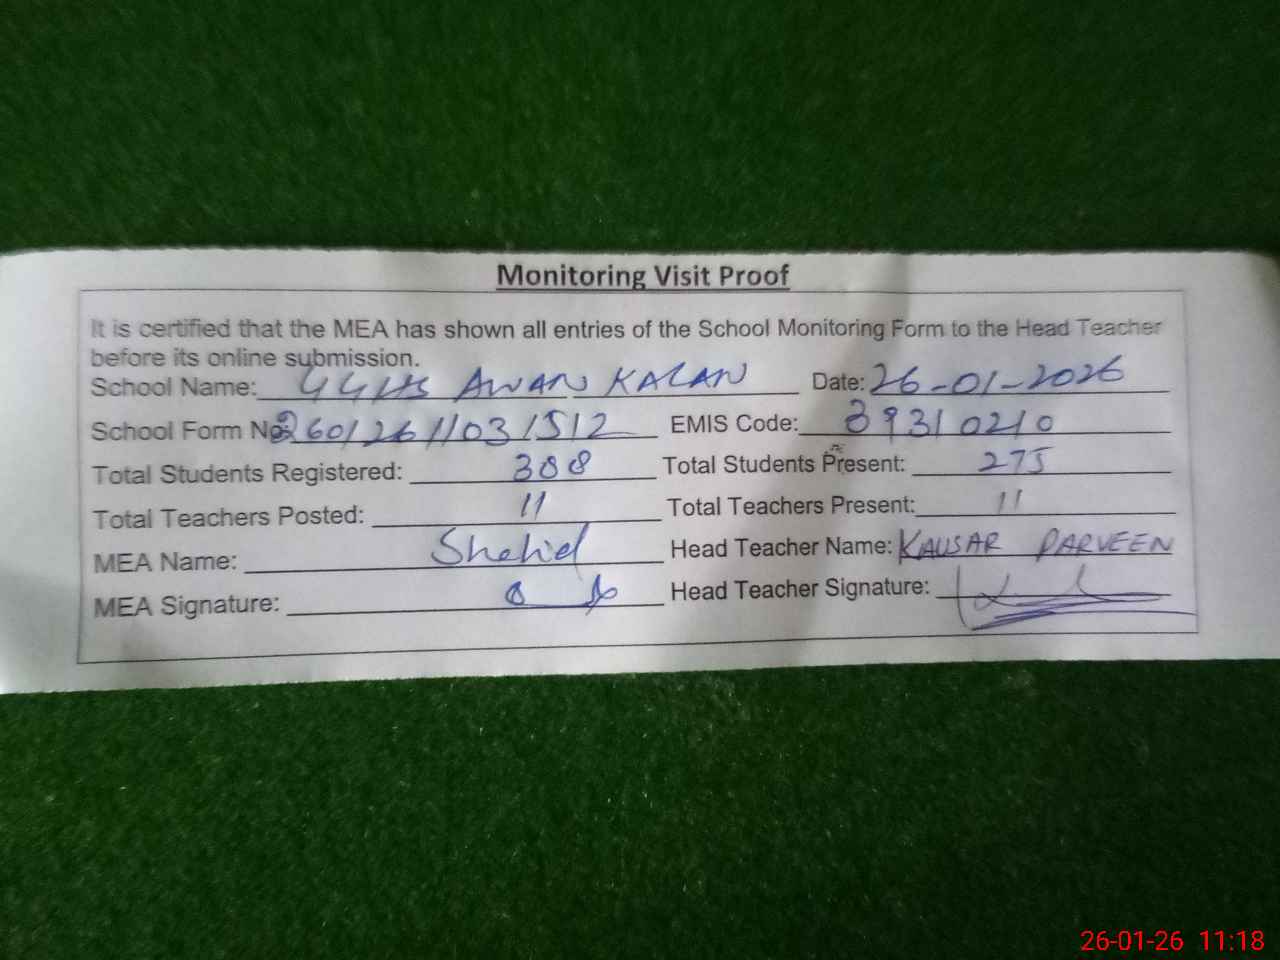 Monitoring Visit Proof
It is certified that the MEA has shown all entries of the School Monitoring Form to the Head Teacher
before its online submission.
School Name: GGHS AWAN KALAN Date: 26-01-2026
School Form No: 26012611031512 EMIS Code: 39310210
Total Students Registered: 308 Total Students Present: 275
Total Teachers Posted: 11 Total Teachers Present: 11
MEA Name: Shahid Head Teacher Name: KAUSAR PARVEEN
MEA Signature: Head Teacher Signature:
26-01-26 11:18